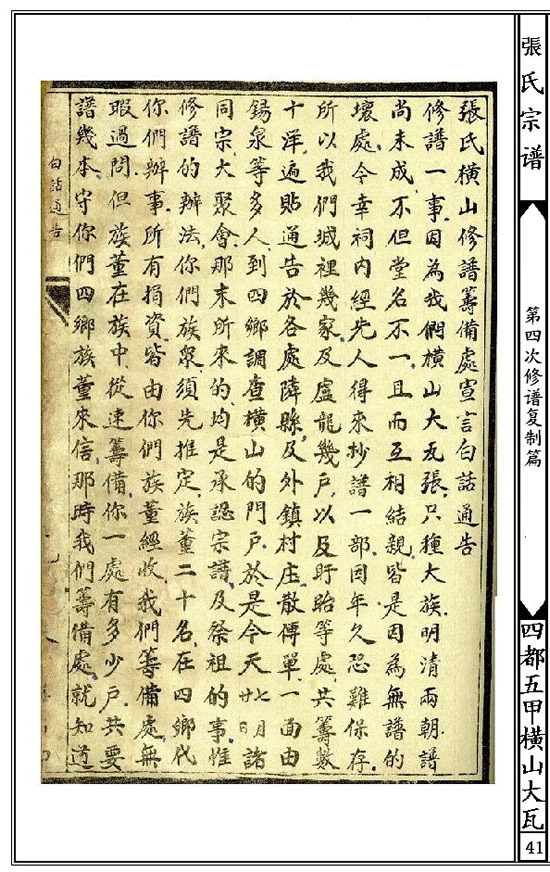 張氏宗谱
第四次修谱复制篇
四都五甲橫山大瓦
41
張氏橫山修譜籌備處宣言白話通告
修譜一事因為我們橫山大瓦張只種大族明清兩朝譜
尚未成不但堂名不一且而互相結親皆是因為無譜的
壞處今幸祠内經先人得來抄譜一部因年久恐難保存
所以我們城裡幾家及盧龍幾戶以及盱眙等處共籌數
十洋遍貼通告於各處隣縣及外鎮村庄散傳單一面由
錫泉等多人到四鄉調查橫山的門戶於是今天廿七明諸
同宗大聚會那末所來的均是承認宗譜及祭祖的事惟
修譜的辦法你們族衆須先推定族董二十名在四鄉代
你們辦事所有捐資皆由你們族董經收我們籌備處無
暇過問但族董在族中從速籌備你一處有多少戶共要
譜幾本守你們四鄉族董來信那時我們籌備處就知道
白話通告